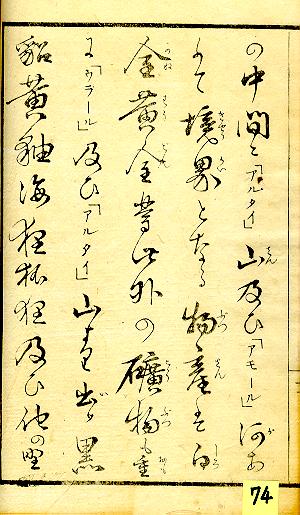 の中間に「アルタイ」山及ひ「アモール」河あ
りて境界となる物産は白
金黄金等此外の礦物も重
に「ウラール」及ひ「アルタイ」山より出づ黒
貂黄鼬海狸狸及ひ他の野
74